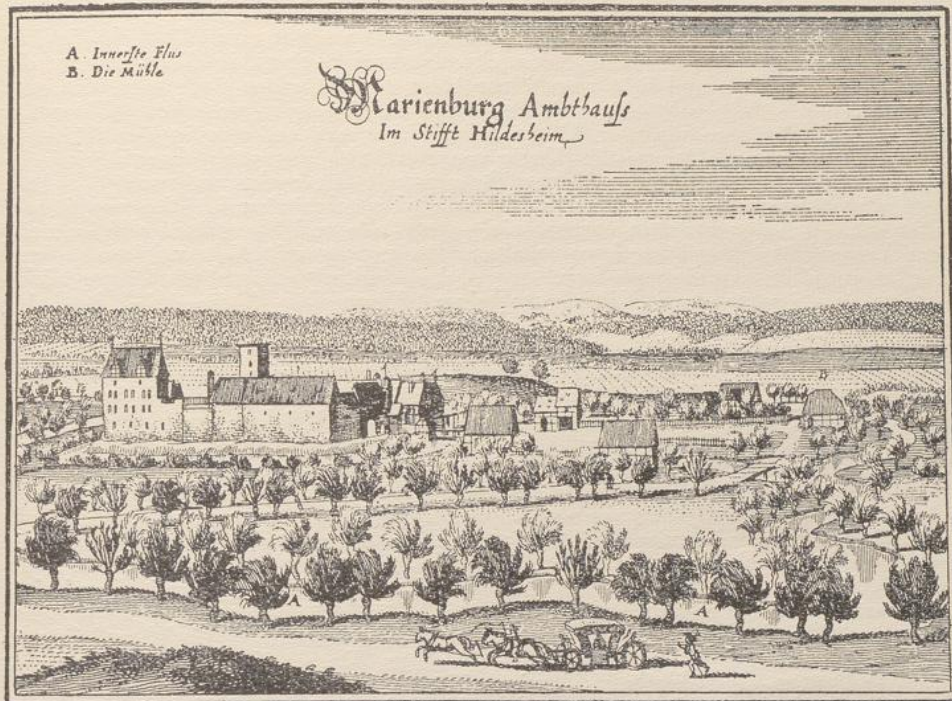 A. Innerſte Flus
B. Die Mühle
Marienburg Ambthauſs
Im Stifft Hildesheim
B
A
A